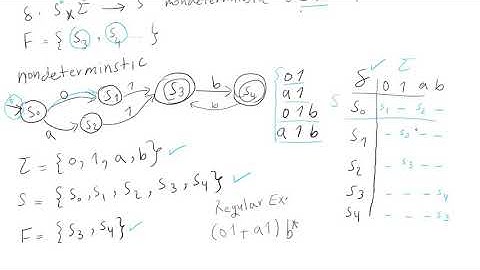 δ: S x Σ → S nondeterministic
F = { S3, S4 }
nondeterminstic
S0 0 S1 1 S3 b S4
a S2 1 b
01
a1
01b
a1b
Σ = {0, 1, a, b} ✓
S = {S0, S1, S2, S3, S4} ✓
F = {S3, S4} ✓
Regular Ex.
(01+a1) b*
δ ✓ Σ
0 1 a b
S S0 S1 - S2 -
S1 - S3 - -
S2 - S3 - -
S3 - - - S4
S4 - - - S3